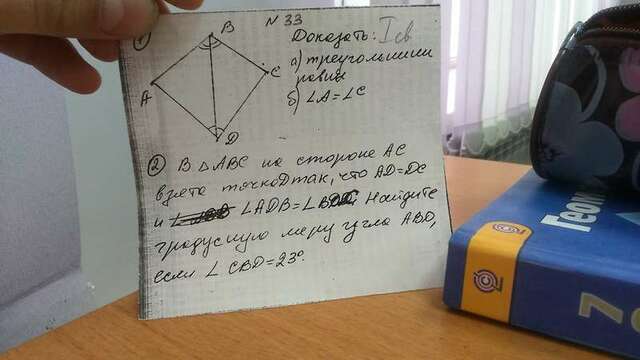 N 33
1
B
A
C
D
Доказать: I св
а) треугольники
равны
б) ∠A = ∠C
2 В △ABC на стороне AC
взята точка D так, что AD=DC
и ∠ADB=∠BDC. Найдите
градусную меру угла ABD,
если ∠CBD=23°.
Геом
7